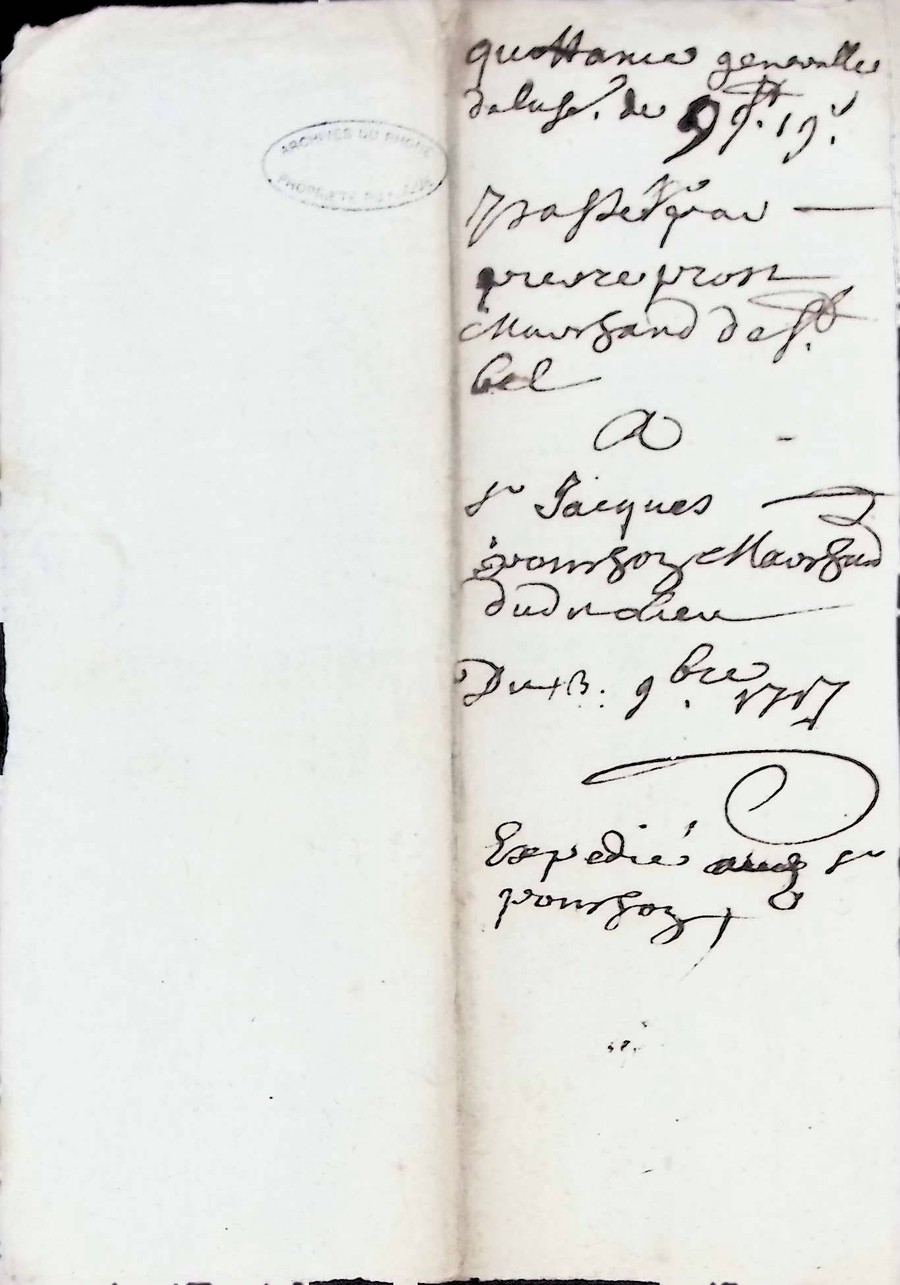 ARCHIVES DU RHONE
PROPRIETE PUBLIQUE
quottance generalle
de la so.e de 9 lt. 19 s.
passée par
pierre prost
Marchand de St.
bel
A
sr Jacques
ponchon Marchand
dudit lieu
Du 13. 9.bre 1717
Expedié aud sr
ponchon